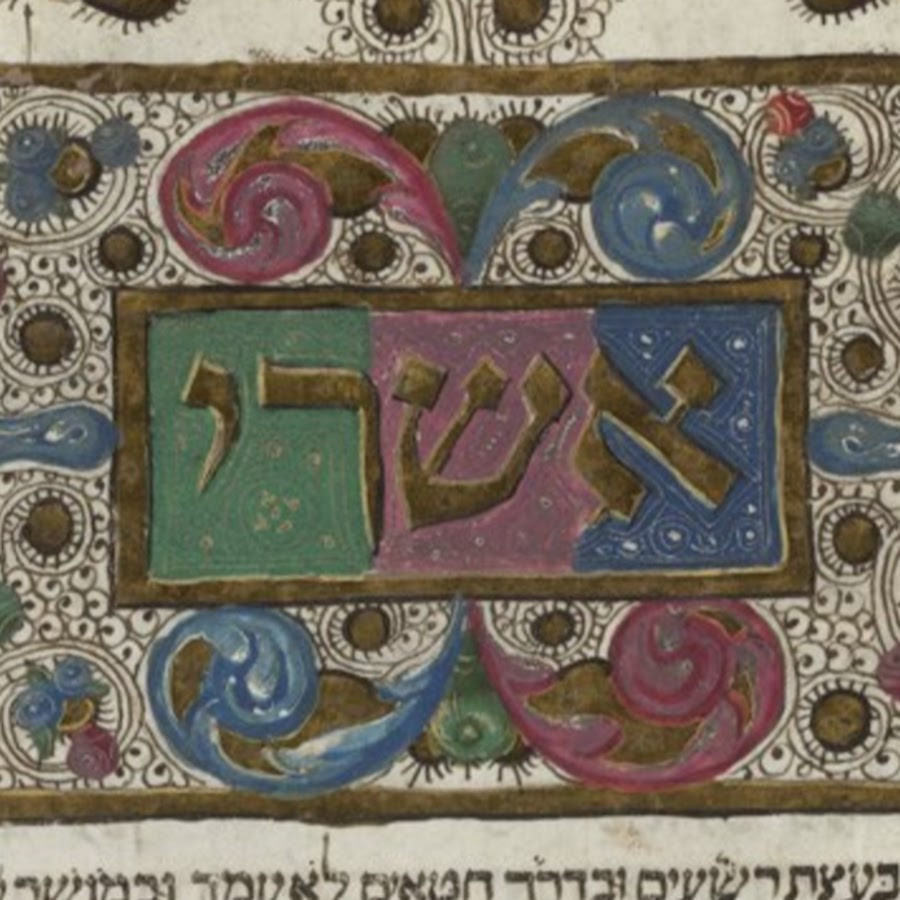 אשרי
בעצת רשעים ובדרך חטאים לא עמד ובמושב